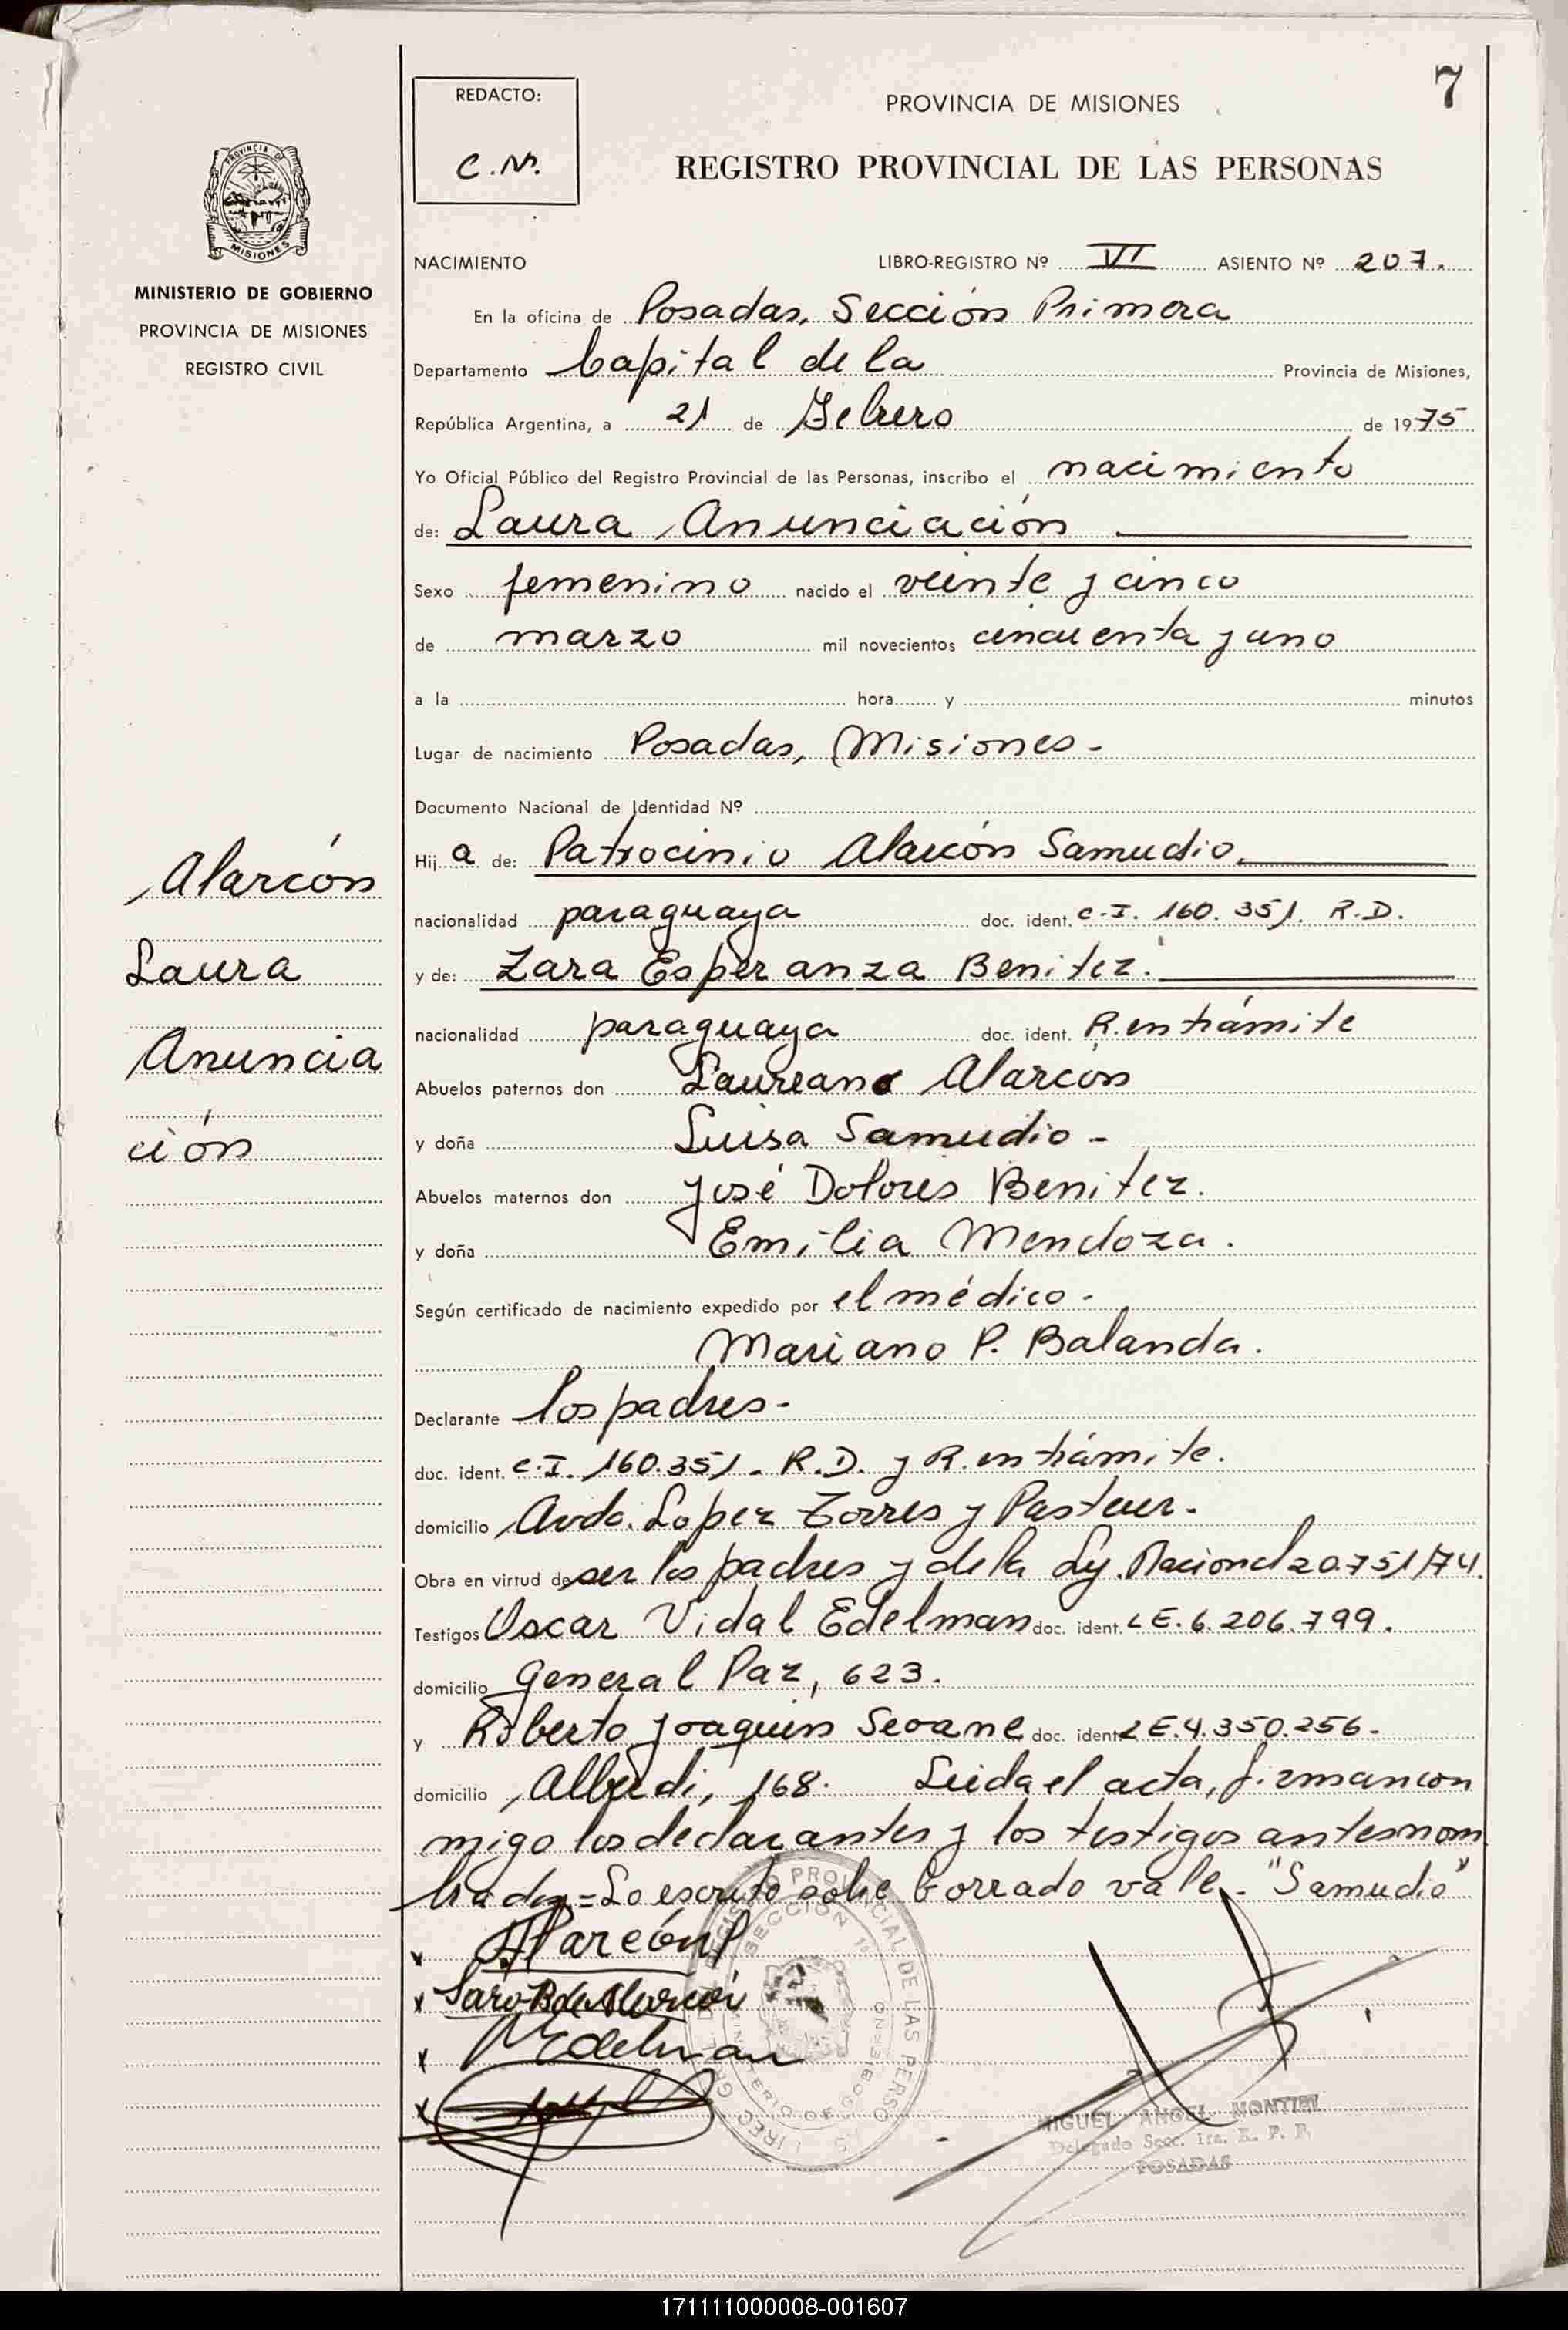 7
REDACTO:
C.N.
PROVINCIA DE MISIONES
REGISTRO PROVINCIAL DE LAS PERSONAS
PROVINCIA DE MISIONES
MINISTERIO DE GOBIERNO
PROVINCIA DE MISIONES
REGISTRO CIVIL
NACIMIENTO LIBRO-REGISTRO Nº VI ASIENTO Nº 207.
En la oficina de Posadas, Sección Primera
Departamento Capital de la Provincia de Misiones,
República Argentina, a 21 de Febrero de 1975
Yo Oficial Público del Registro Provincial de las Personas, inscribo el nacimiento
de: Laura Anunciación
Sexo femenino nacido el veinte y cinco
de marzo mil novecientos cincuenta y uno
a la hora y minutos
Lugar de nacimiento Posadas, Misiones-
Documento Nacional de Identidad Nº
Hija de: Patrocinio Alarcón Samudio.
nacionalidad paraguaya doc. ident. C.I. 160.351. R.D.
y de: Zara Esperanza Benitez.
nacionalidad paraguaya doc. ident. R. en trámite
Abuelos paternos don Laureano Alarcón
y doña Luisa Samudio-
Abuelos maternos don José Dolores Benitez.
y doña Emilia Mendoza.
Según certificado de nacimiento expedido por el médico-
Mariano P. Balanda.
Declarante los padres-
doc. ident. C.I. 160.351. R.D. y R. en trámite.
domicilio Avda. Lopez Torres y Pasteur-
Obra en virtud de ser los padres y de la Ley Nacional 20.751/74.
Testigos Oscar Vidal Edelman doc. ident. LE. 6.206.799.
domicilio General Paz, 623.
y Roberto Joaquin Seoane doc. ident LE. 4.350.256-
domicilio Alberdi, 168. Leida el acta, firman con
migo los declarantes y los testigos antes nom
brados=Lo escrito sobre borrado vale-"Samudio"
Alarcón
Laura
Anuncia
ción
x Alarcón
x Sara B de Alarcón
x Edelman
x
REGISTRO PROVINCIAL DE LAS PERSONAS
SECCION 1ª
MINISTERIO DE GOBIERNO
MIGUEL ANGEL MONTIEL
Delegado Secc. 1ra. R. P. P.
POSADAS
171111000008-001607